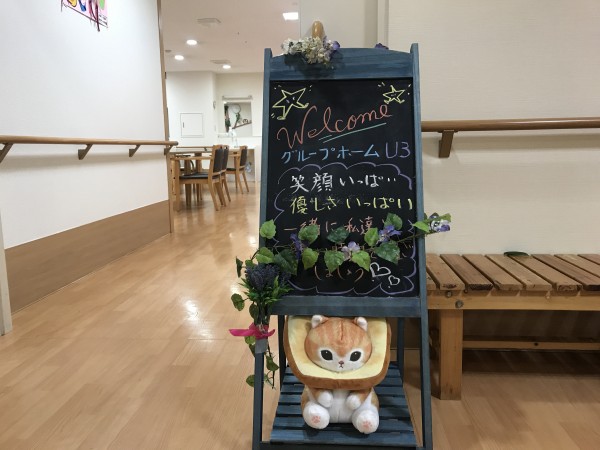 Welcome
グループホーム U3
笑顔いっぱい
優しさいっぱい
一緒に私達